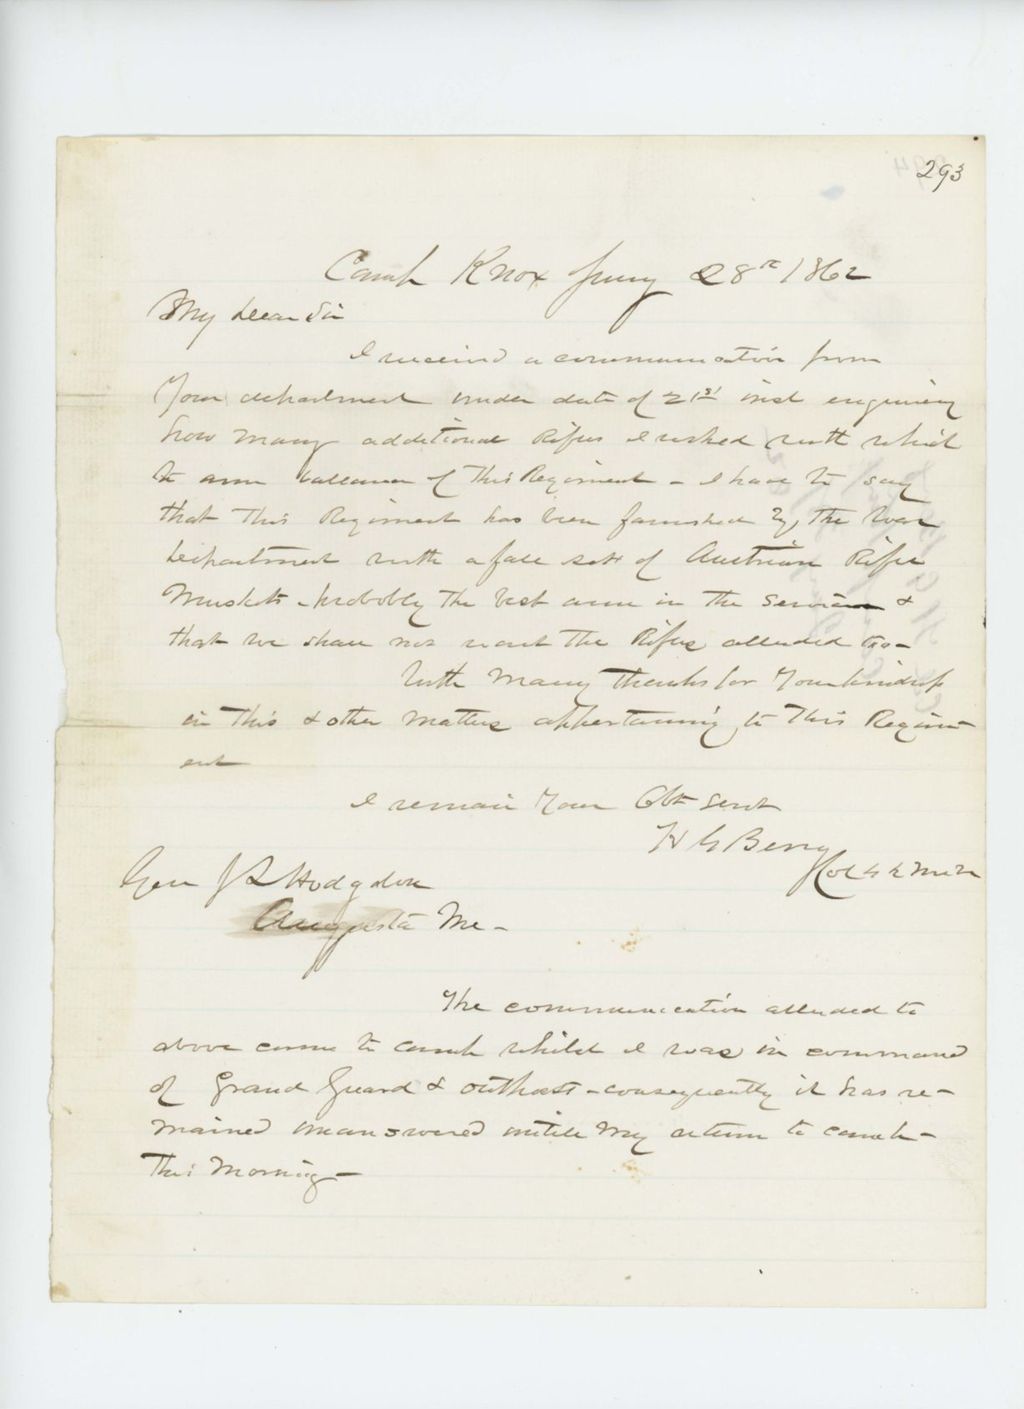 293
Camp Knox Jany 28th 1862
My Dear Sir
I received a communication from
Your department under date of 21st inst enquiring
how many additional Rifles I wished with which
to arm ballance of This Regiment - I have to say
that This Regiment has been furnished by, the War
Department with a full sett of Austrian Rifle
Muskets - probobly the best arm in the Service &
that we shall not want the Rifles alluded to -
With Many thanks for Your kindness
in This & other Matters appertaining to This Regim-
ent
I remain Your Obt Servt
H G Berry
Col 4th Me
Gen J L Hodgdon
Augusta Me -
The communication alluded to
above came to camp whilst I was in command
of Grand Guard & outpost - consequently it has re-
mained unanswered untill My return to camp -
This Morning -